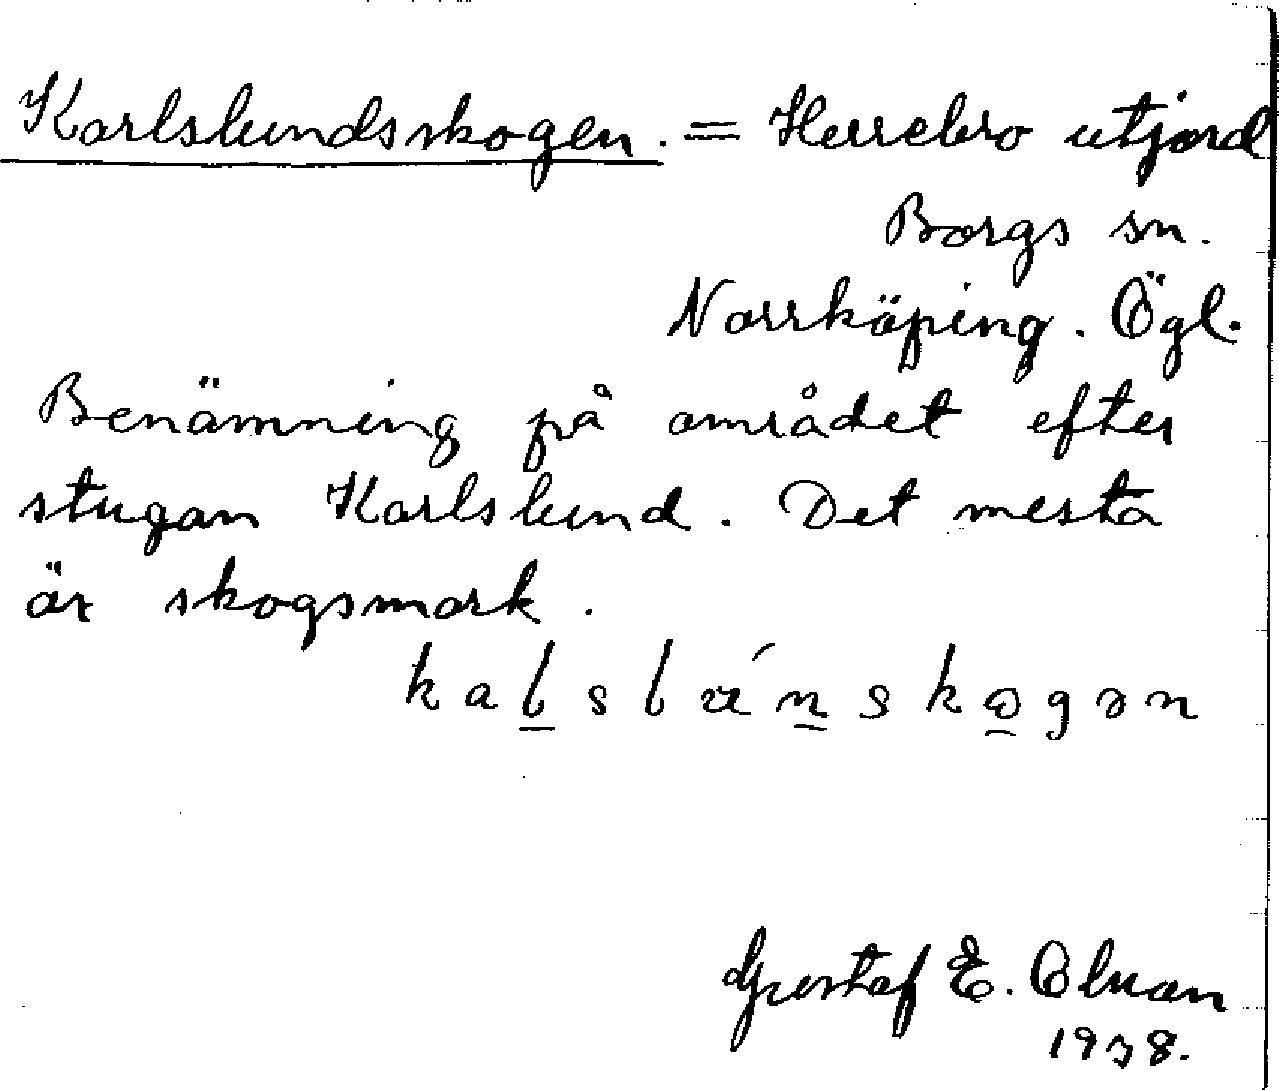 Karlslundsskogen. = Herrebro utjord
Borgs sn.
Norrköping. Ögl.
Benämning på området efter
stugan Karlslund. Det mesta
är skogsmark.
Gustaf E.
1938.